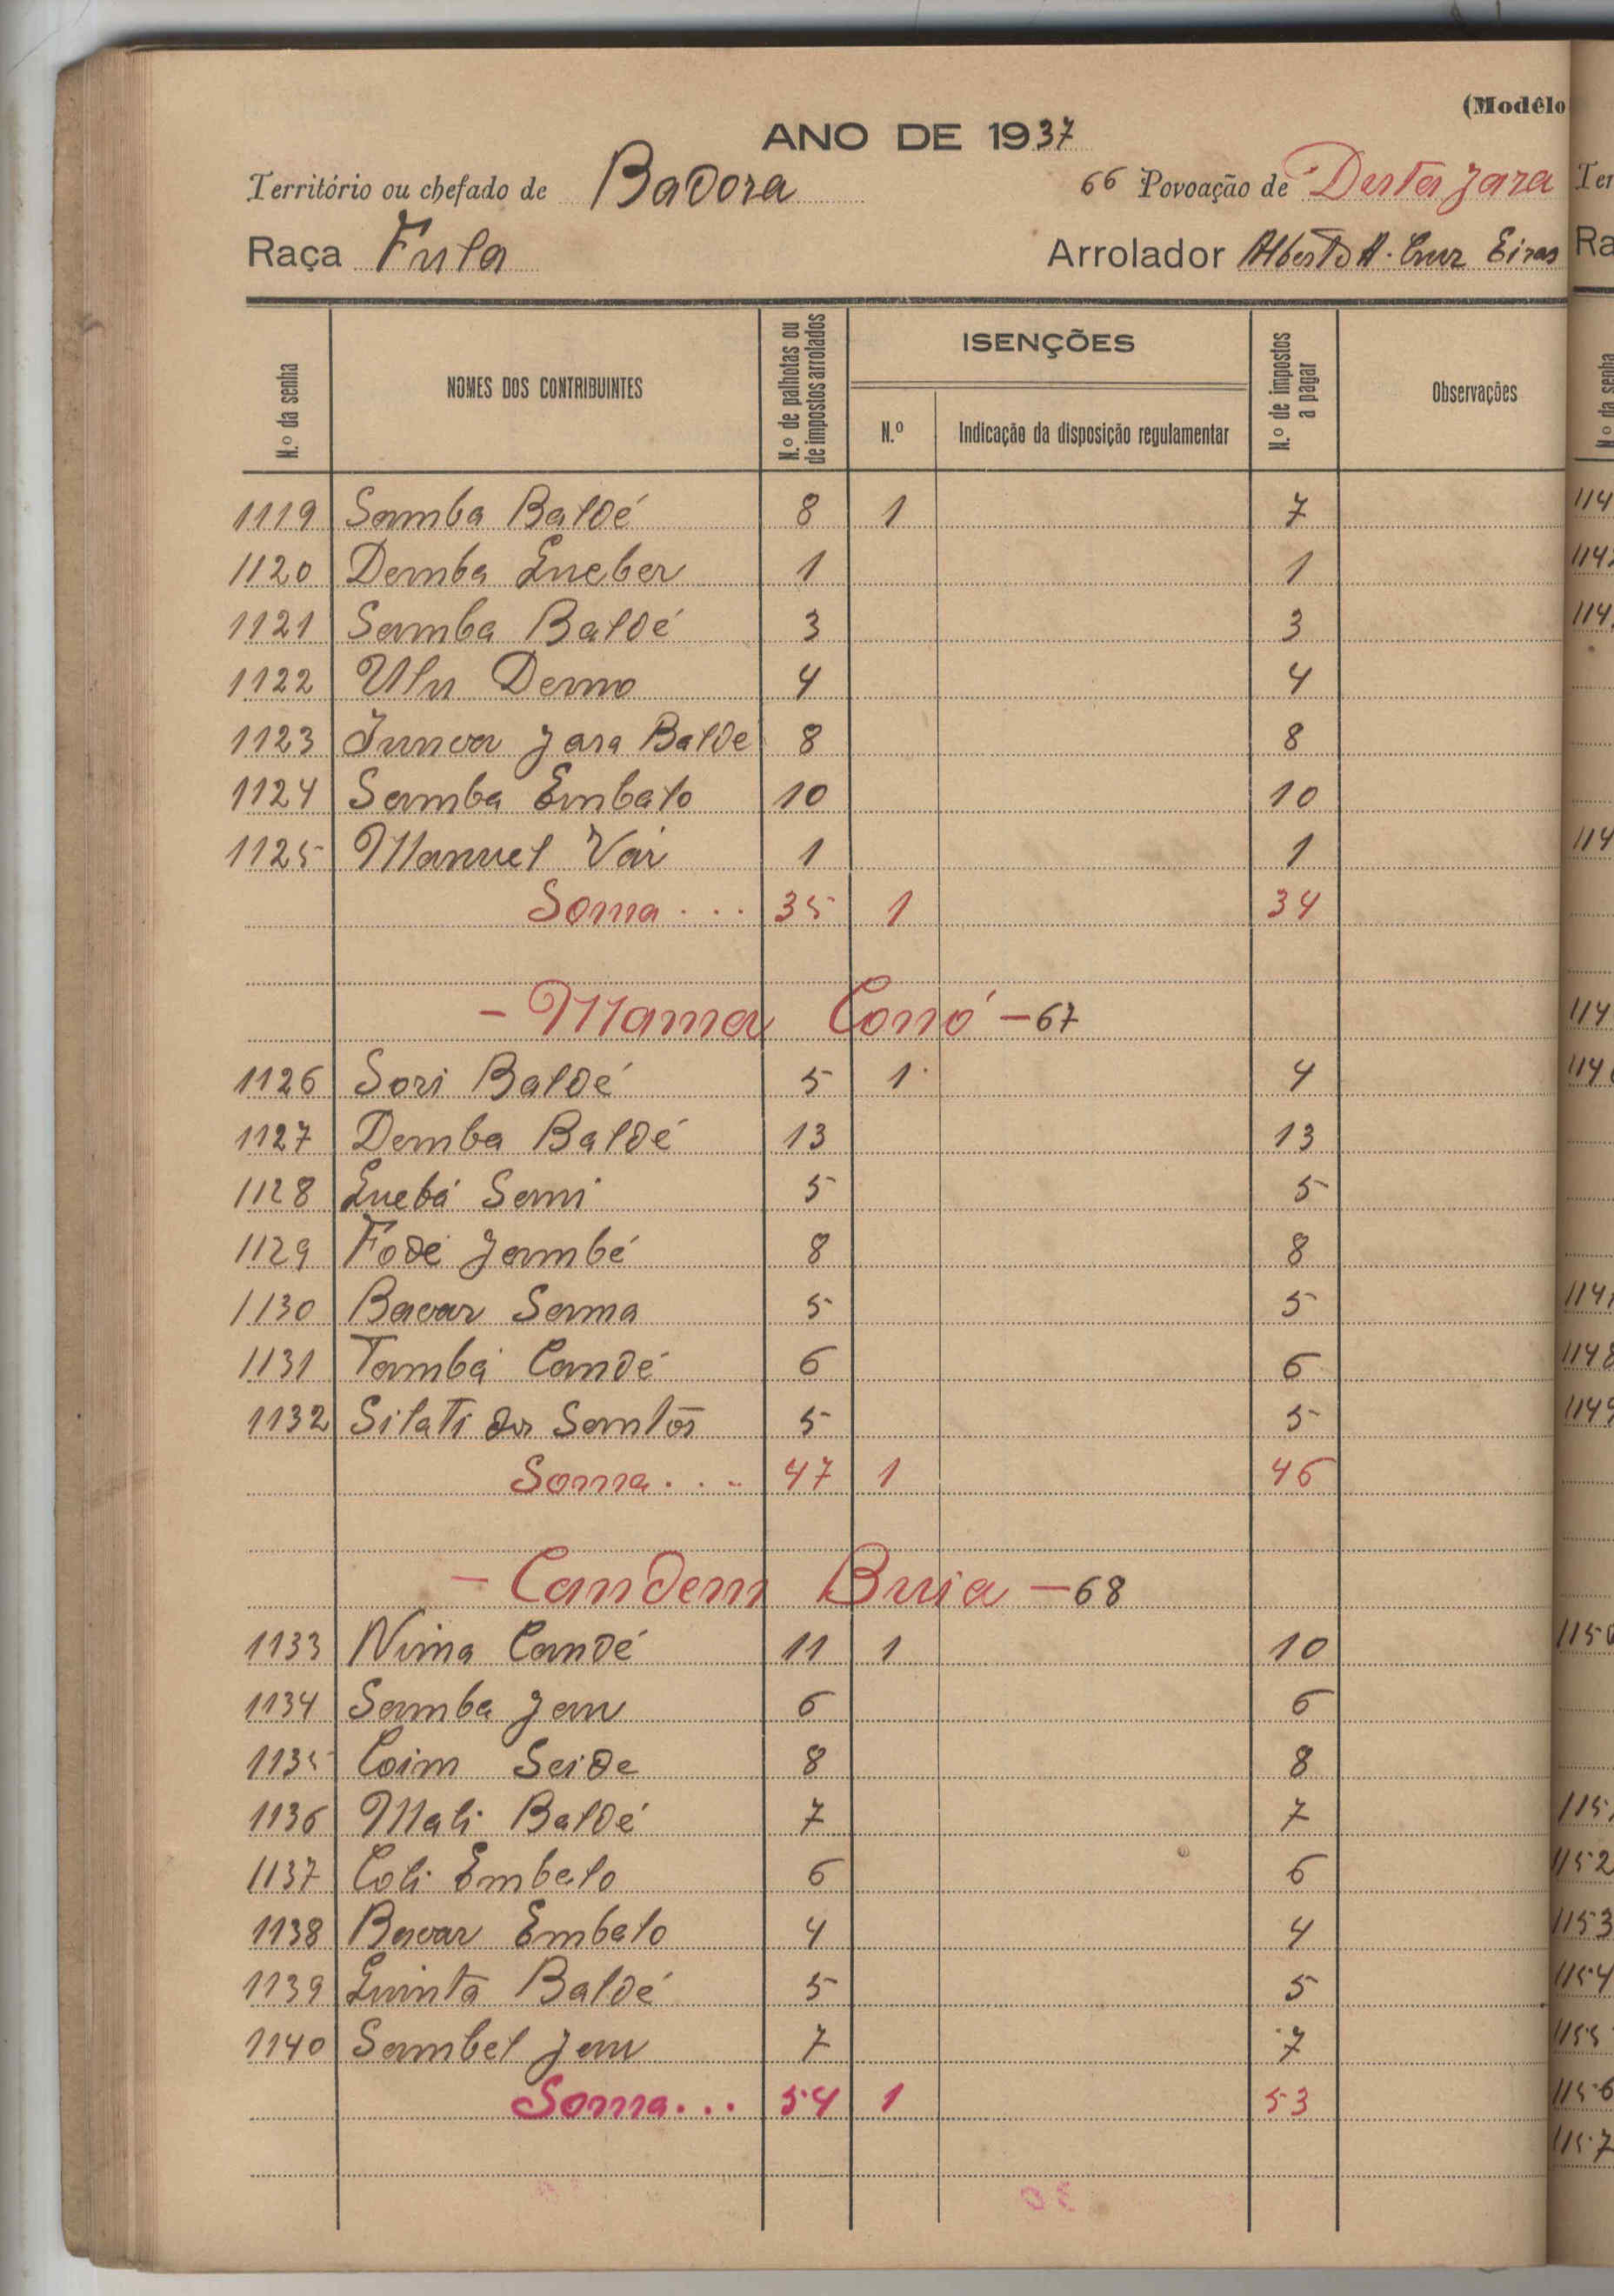 (Modêlo
ANO DE 1937
Território ou chefado de Badora 66 Povoação de Desta Jara
Raça Fula Arrolador Alberto A. Cruz Eiras
N.º da senha NOMES DOS CONTRIBUINTES N.º de palhotas ou de impostos arrolados ISENÇÕES N.º de impostos a pagar Observações
N.º Indicação da disposição regulamentar
1119 Samba Baldé 8 1 7
1120 Demba Queber 1 1
1121 Samba Baldé 3 3
1122 Ulu Demo 4 4
1123 Juncar Jara Balde 8 8
1124 Samba Embalo 10 10
1125 Manuel Vai 1 1
Soma... 35 1 34
- Mama Conó - 67
1126 Sori Baldé 5 1 4
1127 Demba Baldé 13 13
1128 Quebá Sami 5 5
1129 Fodé Jambé 8 8
1130 Bacar Sama 5 5
1131 Tambá Candé 6 6
1132 Silati dos Santos 5 5
Soma... 47 1 46
- Candem Bruia - 68
1133 Nima Candé 11 1 10
1134 Samba Jau 6 6
1135 Coim Seide 8 8
1136 Mali Baldé 7 7
1137 Coli Embalo 6 6
1138 Bacar Embalo 4 4
1139 Quinta Baldé 5 5
1140 Sambel Jau 7 7
Soma... 54 1 53